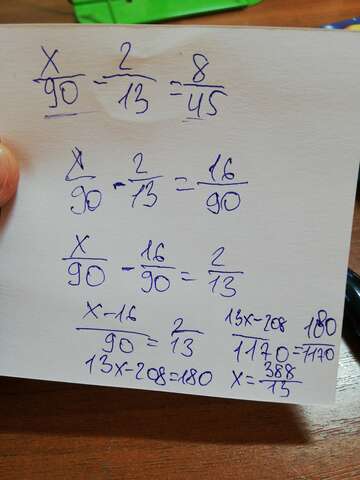 x/90 - 2/13 = 8/45
x/90 - 2/13 = 16/90
x/90 - 16/90 = 2/13
x-16/90 = 2/13
13x-208/1170 = 180/1170
13x-208=180
x=388/13